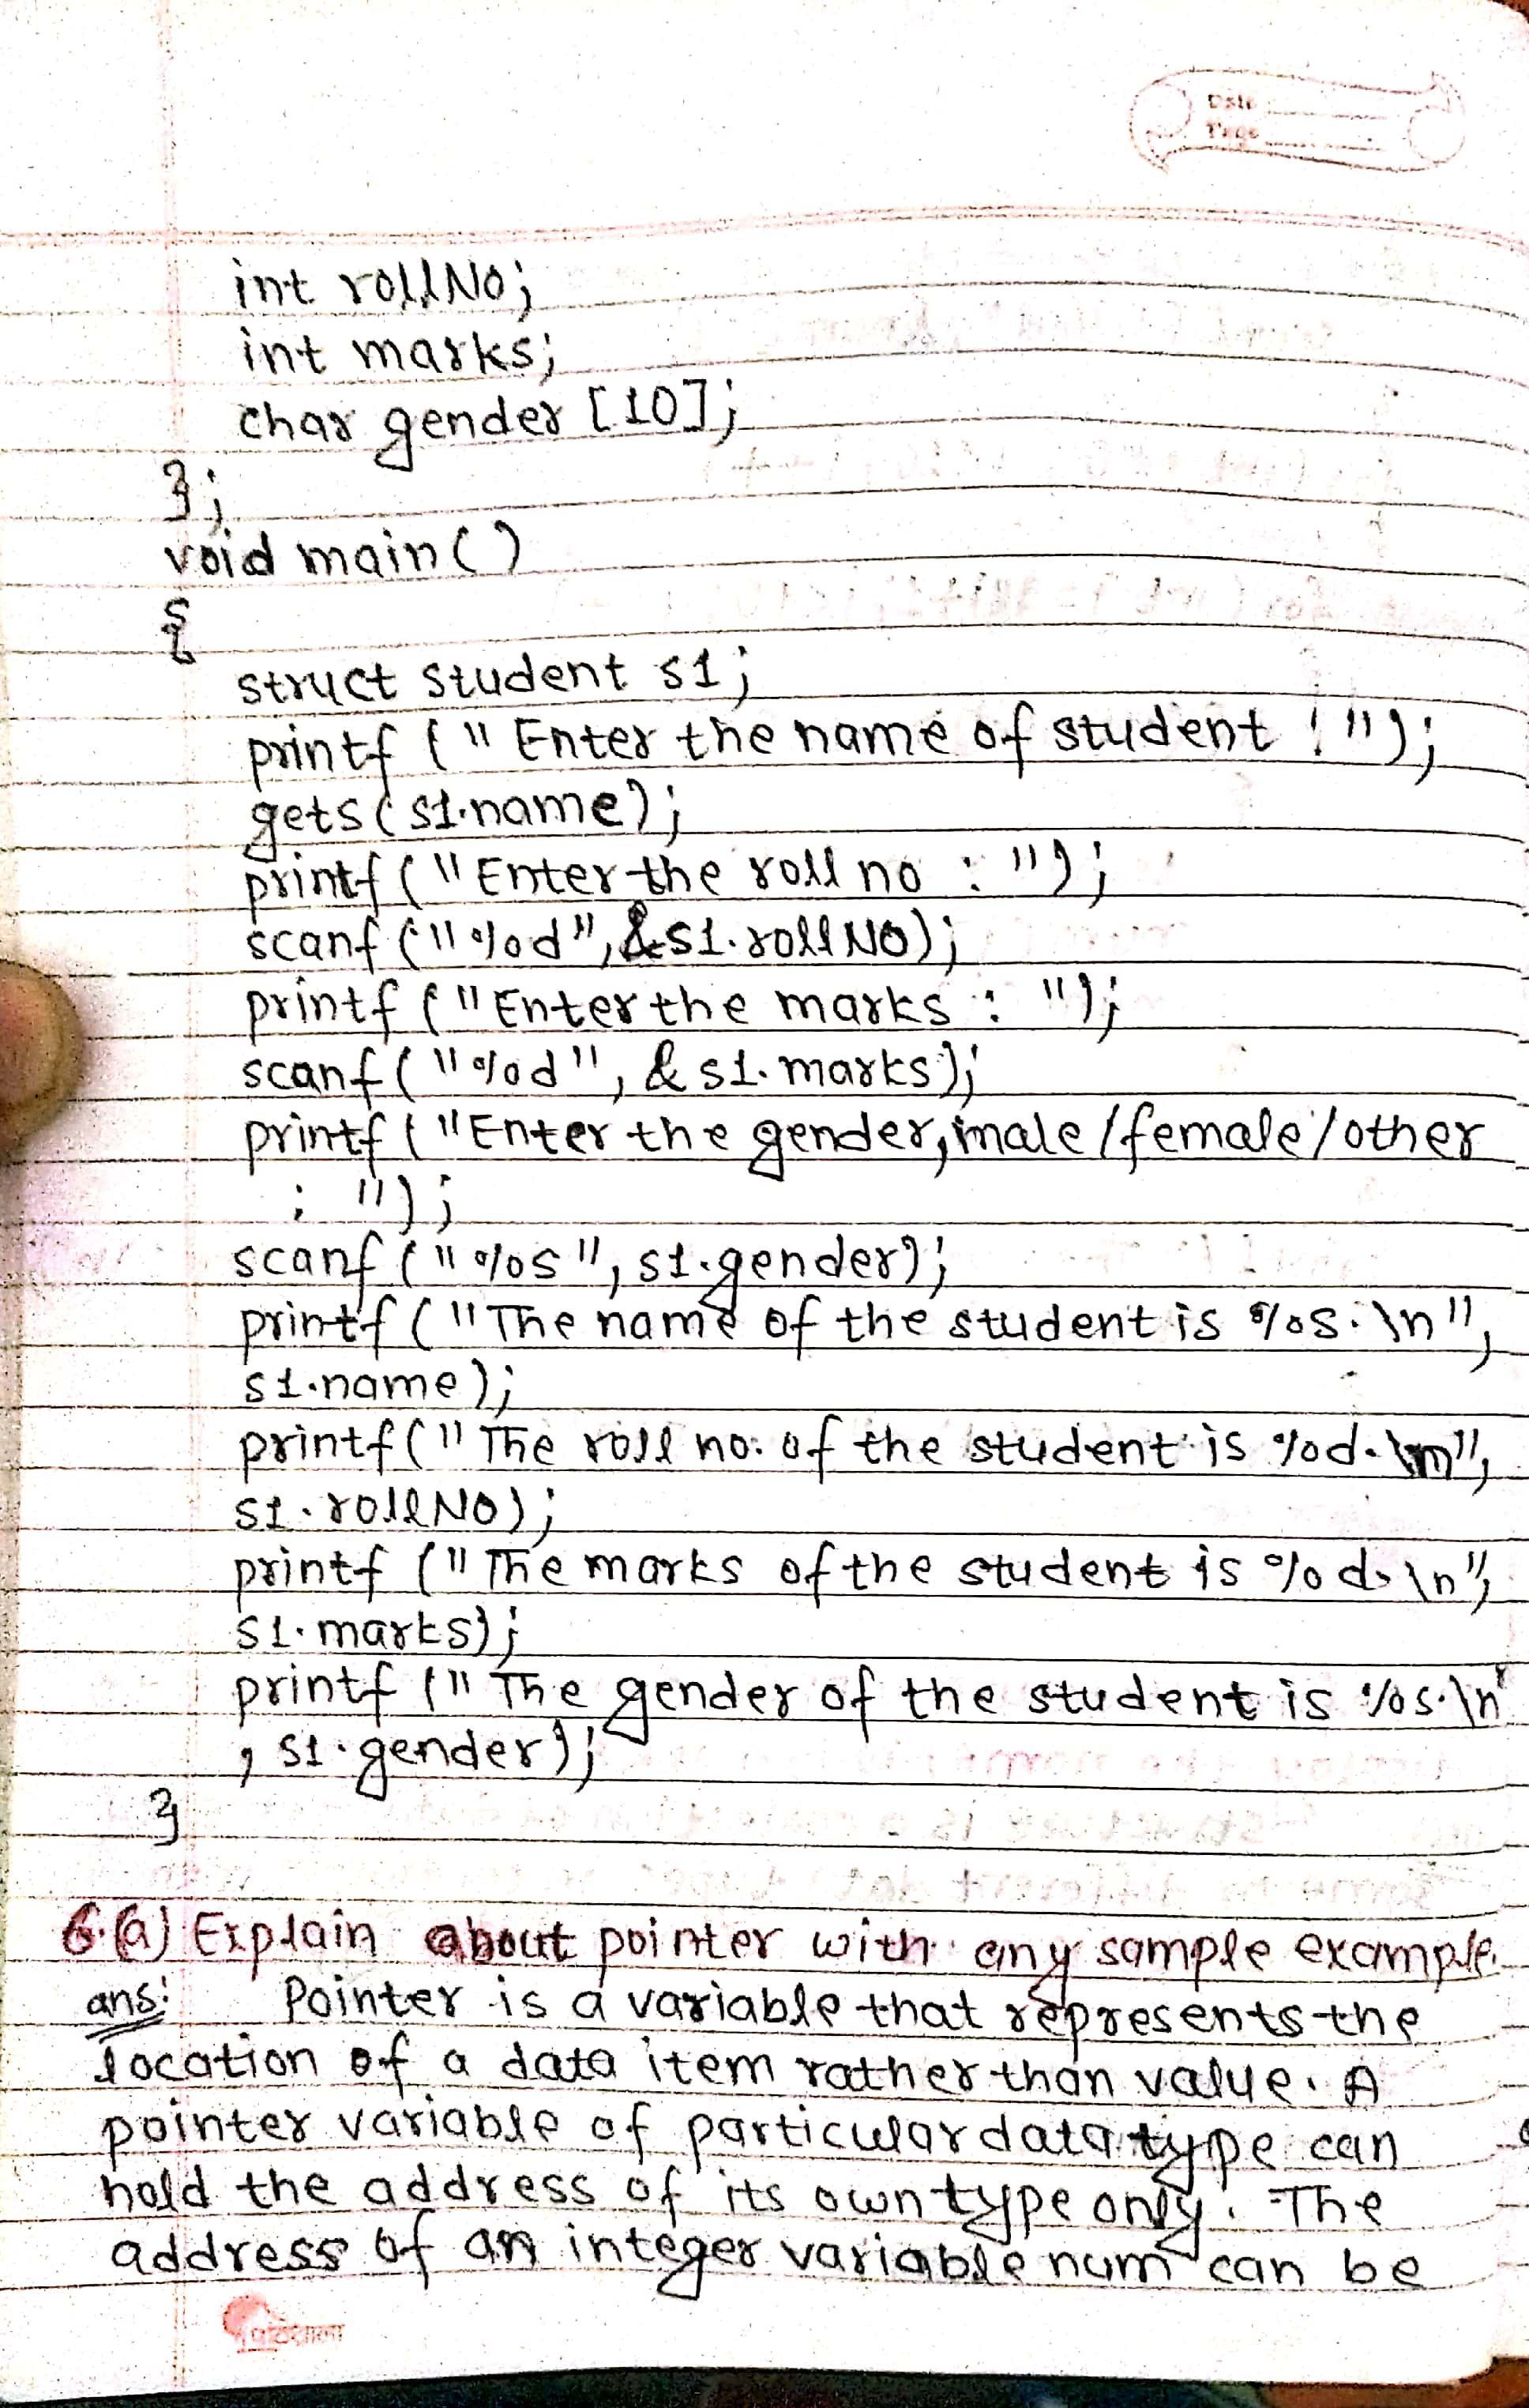 Date
Page
int rollNo;
int marks;
char gender [10];
};
void main()
{
struct student s1;
printf (" Enter the name of student : ");
gets(s1.name);
printf ("Enter the roll no : ");
scanf ("%d", &s1.rollNO);
printf ("Enter the marks : ");
scanf ("%d", &s1.marks);
printf ("Enter the gender, male / female / other
: ");
scanf ("%s", s1.gender);
printf ("The name of the student is %s. \n",
s1.name);
printf(" The roll no. of the student is %d. \n",
s1.rollNO);
printf (" The marks of the student is %d. \n",
s1.marks);
printf (" The gender of the student is %s. \n"
, s1.gender);
}
6.(a) Explain about pointer with any sample example.
ans: Pointer is a variable that represents the
location of a data item rather than value. A
pointer variable of particular data type can
hold the address of its own type only. The
address of an integer variable num can be
पाठशाला